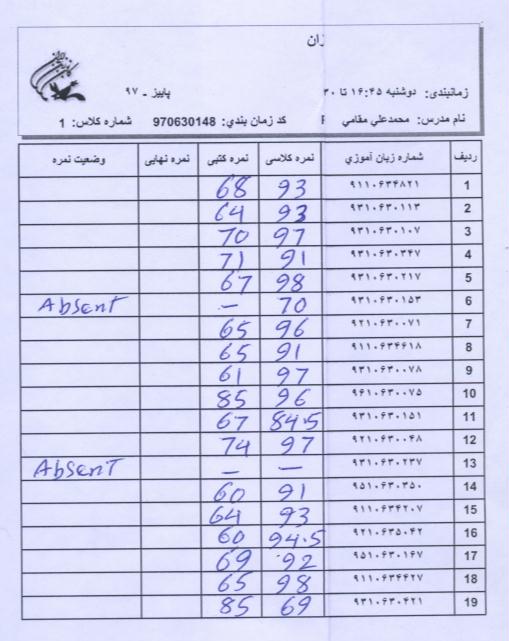 زان
پاییز - ۹۷
زمانبندی: دوشنبه ۱۶:۴۵ تا ۳۰
نام مدرس: محمدعلي مقامي کد زمان بندي: 970630148 شماره کلاس: 1
ردیف شماره زبان آموزي نمره کلاسی نمره کتبی نمره نهایی وضعیت نمره
1 ۹۱۱۰۶۳۴۸۲۱ 93 68
2 ۹۳۱۰۶۳۰۱۱۳ 93 64
3 ۹۳۱۰۶۳۰۱۰۷ 97 70
4 ۹۳۱۰۶۳۰۳۴۷ 91 71
5 ۹۳۱۰۶۳۰۲۱۷ 98 67
6 ۹۳۱۰۶۳۰۱۵۳ 70 – Absent
7 ۹۲۱۰۶۳۰۰۷۱ 96 65
8 ۹۱۱۰۶۳۴۶۱۸ 91 65
9 ۹۳۱۰۶۳۰۰۷۸ 97 61
10 ۹۶۱۰۶۳۰۰۷۵ 96 85
11 ۹۳۱۰۶۳۰۱۵۱ 84.5 67
12 ۹۲۱۰۶۳۰۰۴۸ 97 74
13 ۹۳۱۰۶۳۰۲۳۷ – – Absent
14 ۹۵۱۰۶۳۰۳۵۰ 91 60
15 ۹۱۱۰۶۳۴۲۰۷ 93 64
16 ۹۲۱۰۶۳۵۰۴۲ 94.5 60
17 ۹۵۱۰۶۳۰۱۶۷ 92 69
18 ۹۱۱۰۶۳۴۴۲۷ 98 65
19 ۹۳۱۰۶۳۰۴۲۱ 69 85